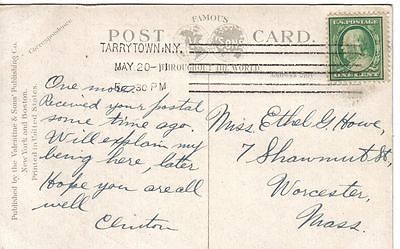 FAMOUS
POST CARD.
THROUGHOUT THE WORLD
TARRYTOWN, N.Y.
MAY 20
5 30 PM
U.S. POSTAGE
ONE CENT
Correspondence.
Published by the Valentine & Sons' Publishing Co.
New York and Boston.
Printed in United States.
One more
Received your postal
some time ago.
Will explain my
being here, later
Hope you are all
well
Clinton
Miss. Ethel G. Howe,
7 Shawmut St,
Worcester,
Mass.